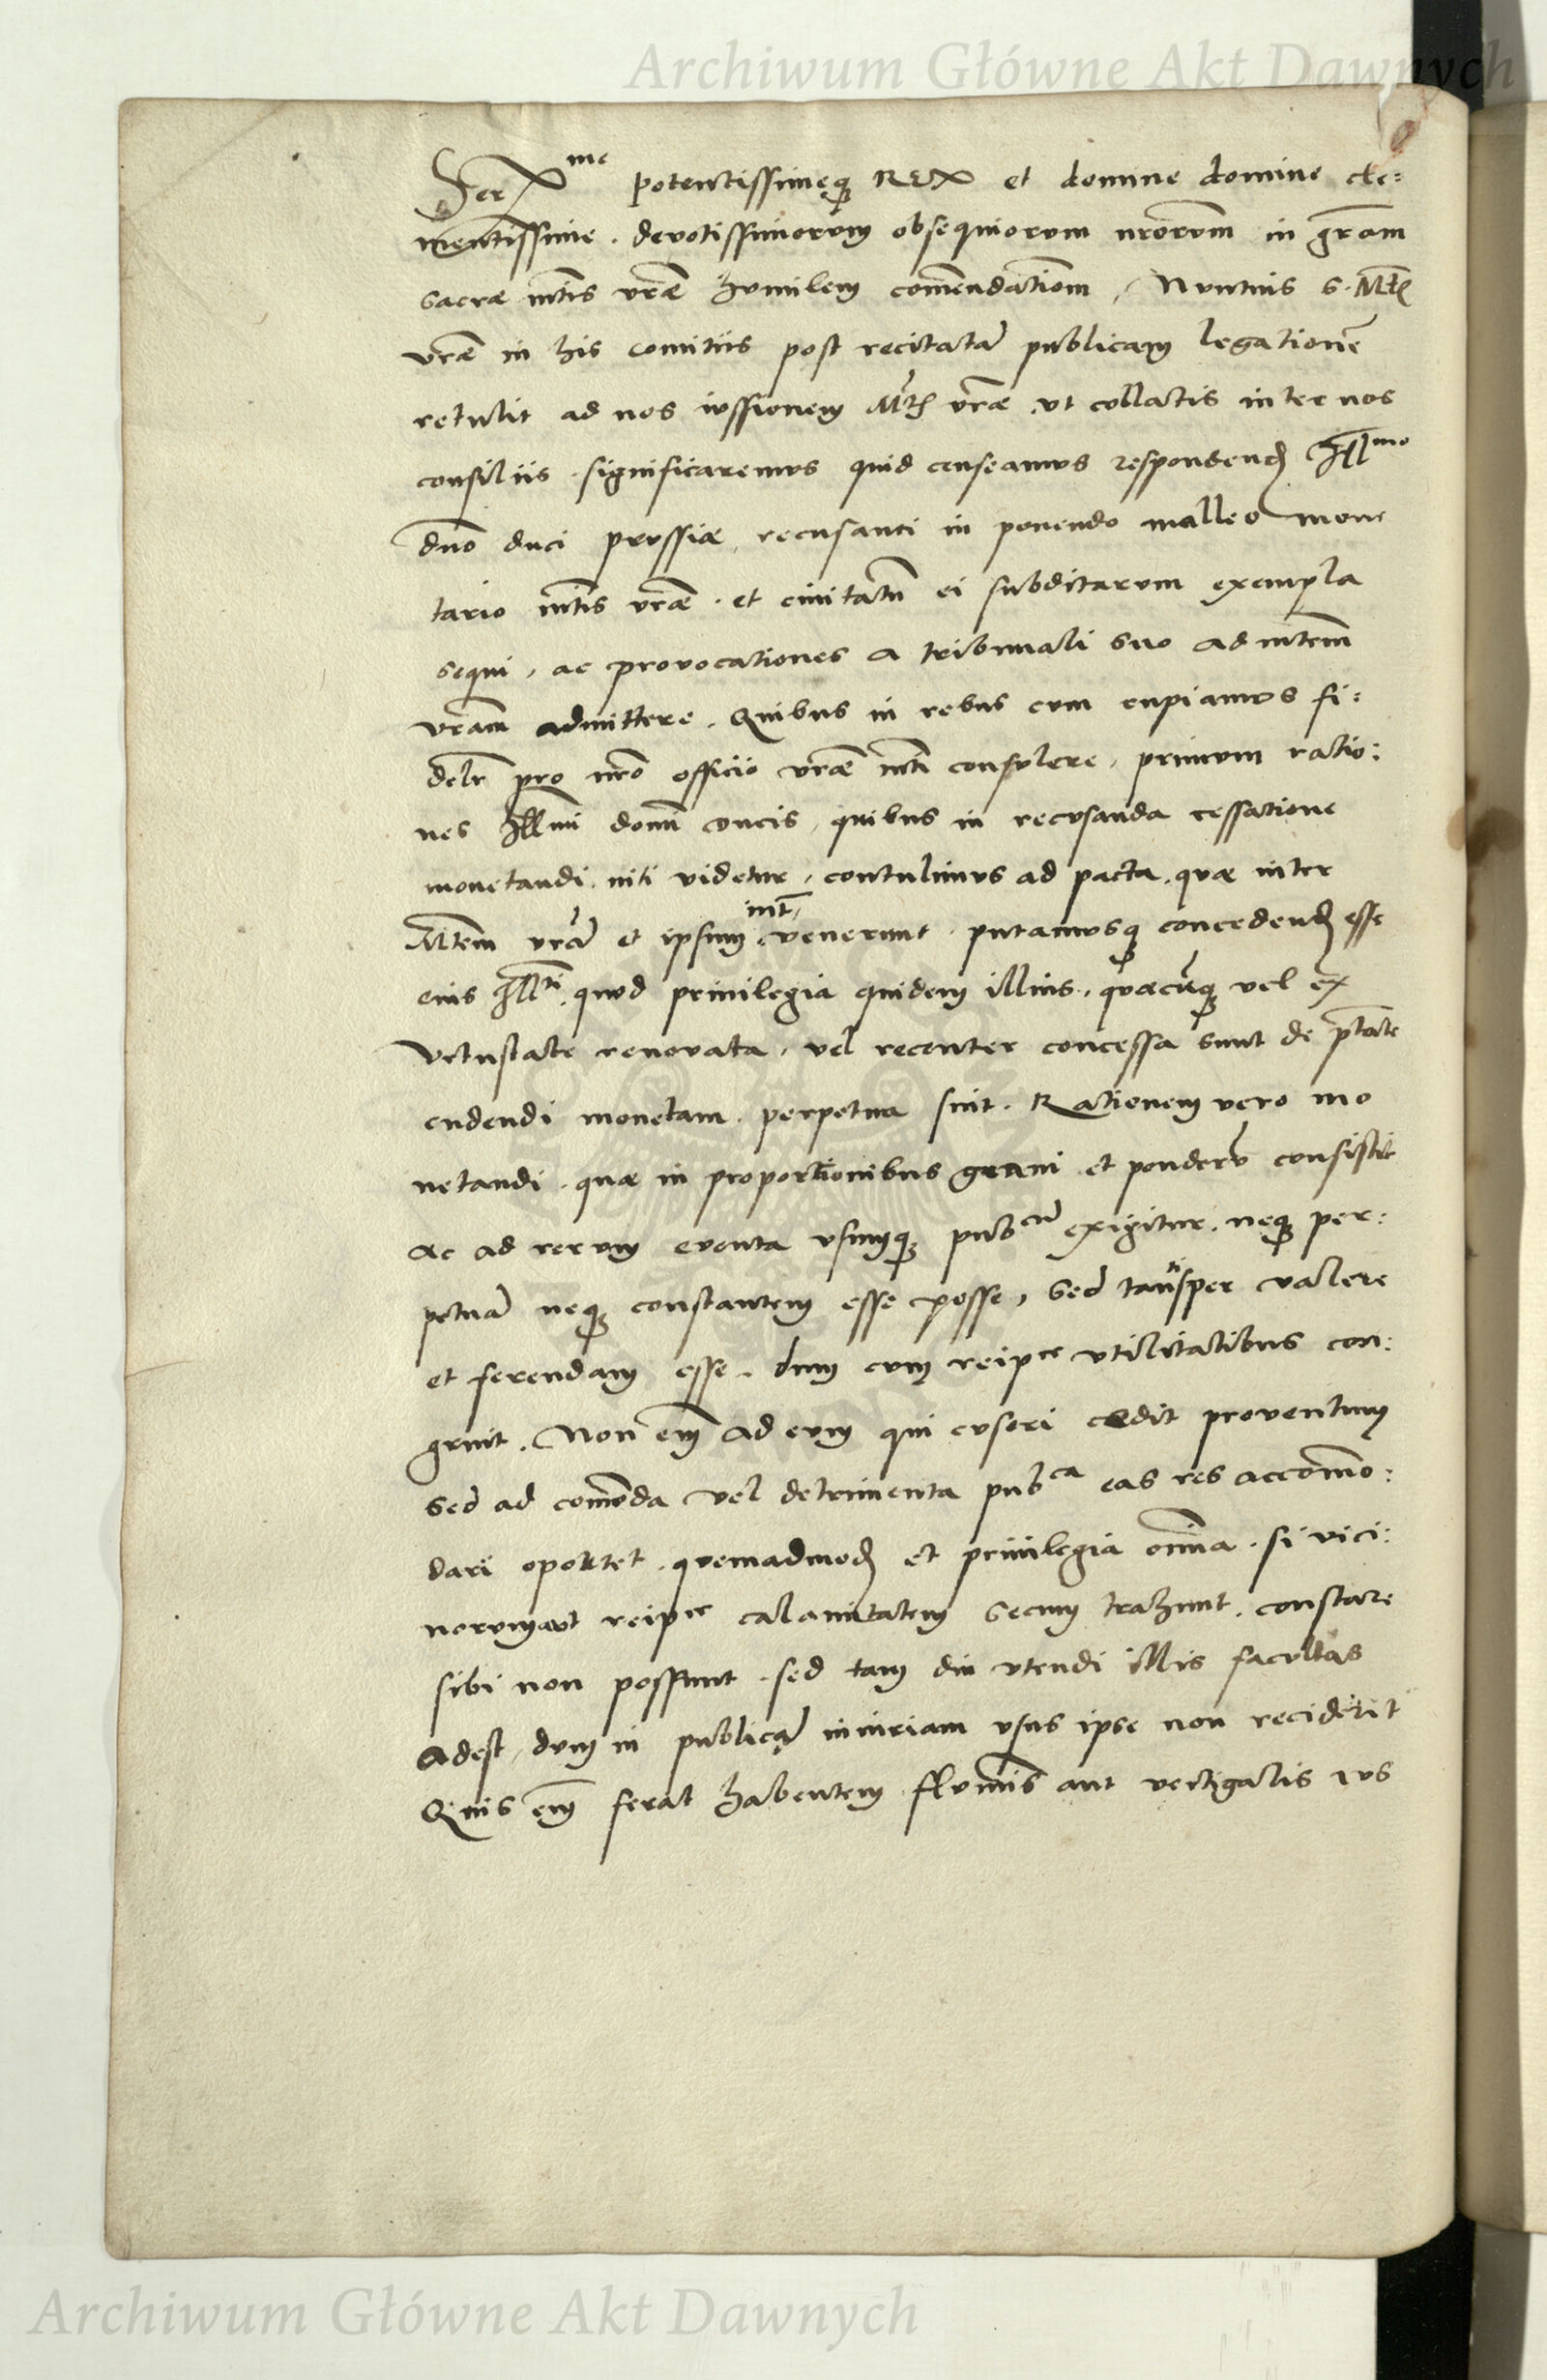 Archiwum Główne Akt Dawnych
Ser^me potentissimeq₃ REX et domine domine cle:
mentissime. devotissimorum obsequiorum nrōrum in grām
sacræ mt̄is vrǣ humilem com̄endatiōm, Nuntius S. Mt̄s
vrǣ in his comitiis post recitatā publicam legationē
retulit ad nos iussionem Mt̄s vrǣ ut collatis inter nos
consiliis. significaremus quid censeamus respondend̄ Ill^mo
dn̄o duci prussiæ, recusanti in ponendo malleo mone
tario mt̄is vrǣ. et civitatū ei subditarum exempla
sequi, ac provocationes a tribunali suo ad mt̄em
vrām admittere. Quibus in rebus cum cupiamus fi:
delr̄ pro nrō officio vrǣ mt̄i consulere, primum ratio:
nes Illm̄i domī ducis, quibus in recusanda cessatione
monetandi. niti videtur, contulimus ad pacta. quæ inter
Mt̄em vrā et ipsum int̄venerunt. putamusq₃ concedend̄ esse
eius Ill^ti. quod privilegia quidem illius, quæcūq₃ vel ex
vetustate renovata, vel recenter concessa sunt de pt̄ate
cudendi monetam. perpetua sint. Rationem vero mo
netandi. quæ in proportionibus grani et ponderū consistit
ac ad rerum eventa usumq₃ pub^cū exigitur. neq₃ per:
petuā neq₃ constantem esse posse, sed tantisper valere
et ferendam esse. dum cum reip^ce utilitatibus con:
gruit. Non em̄ ad eum qui cuseri cedit proventum
sed ad com̄oda vel detrimenta pub^ca eas res accom̄o:
dari oportet. quemadmod̄ et privilegia om̄ia. si vici:
norum aut reip^ce calamitatem secum trahunt. constare
sibi non possunt. sed tam diu utendi illis facultas
adest, dum in publicā iniuriam usus ipse non reciderit
Quis em̄ ferat habentem flumīs aut vectigalis ius
Archiwum Główne Akt Dawnych